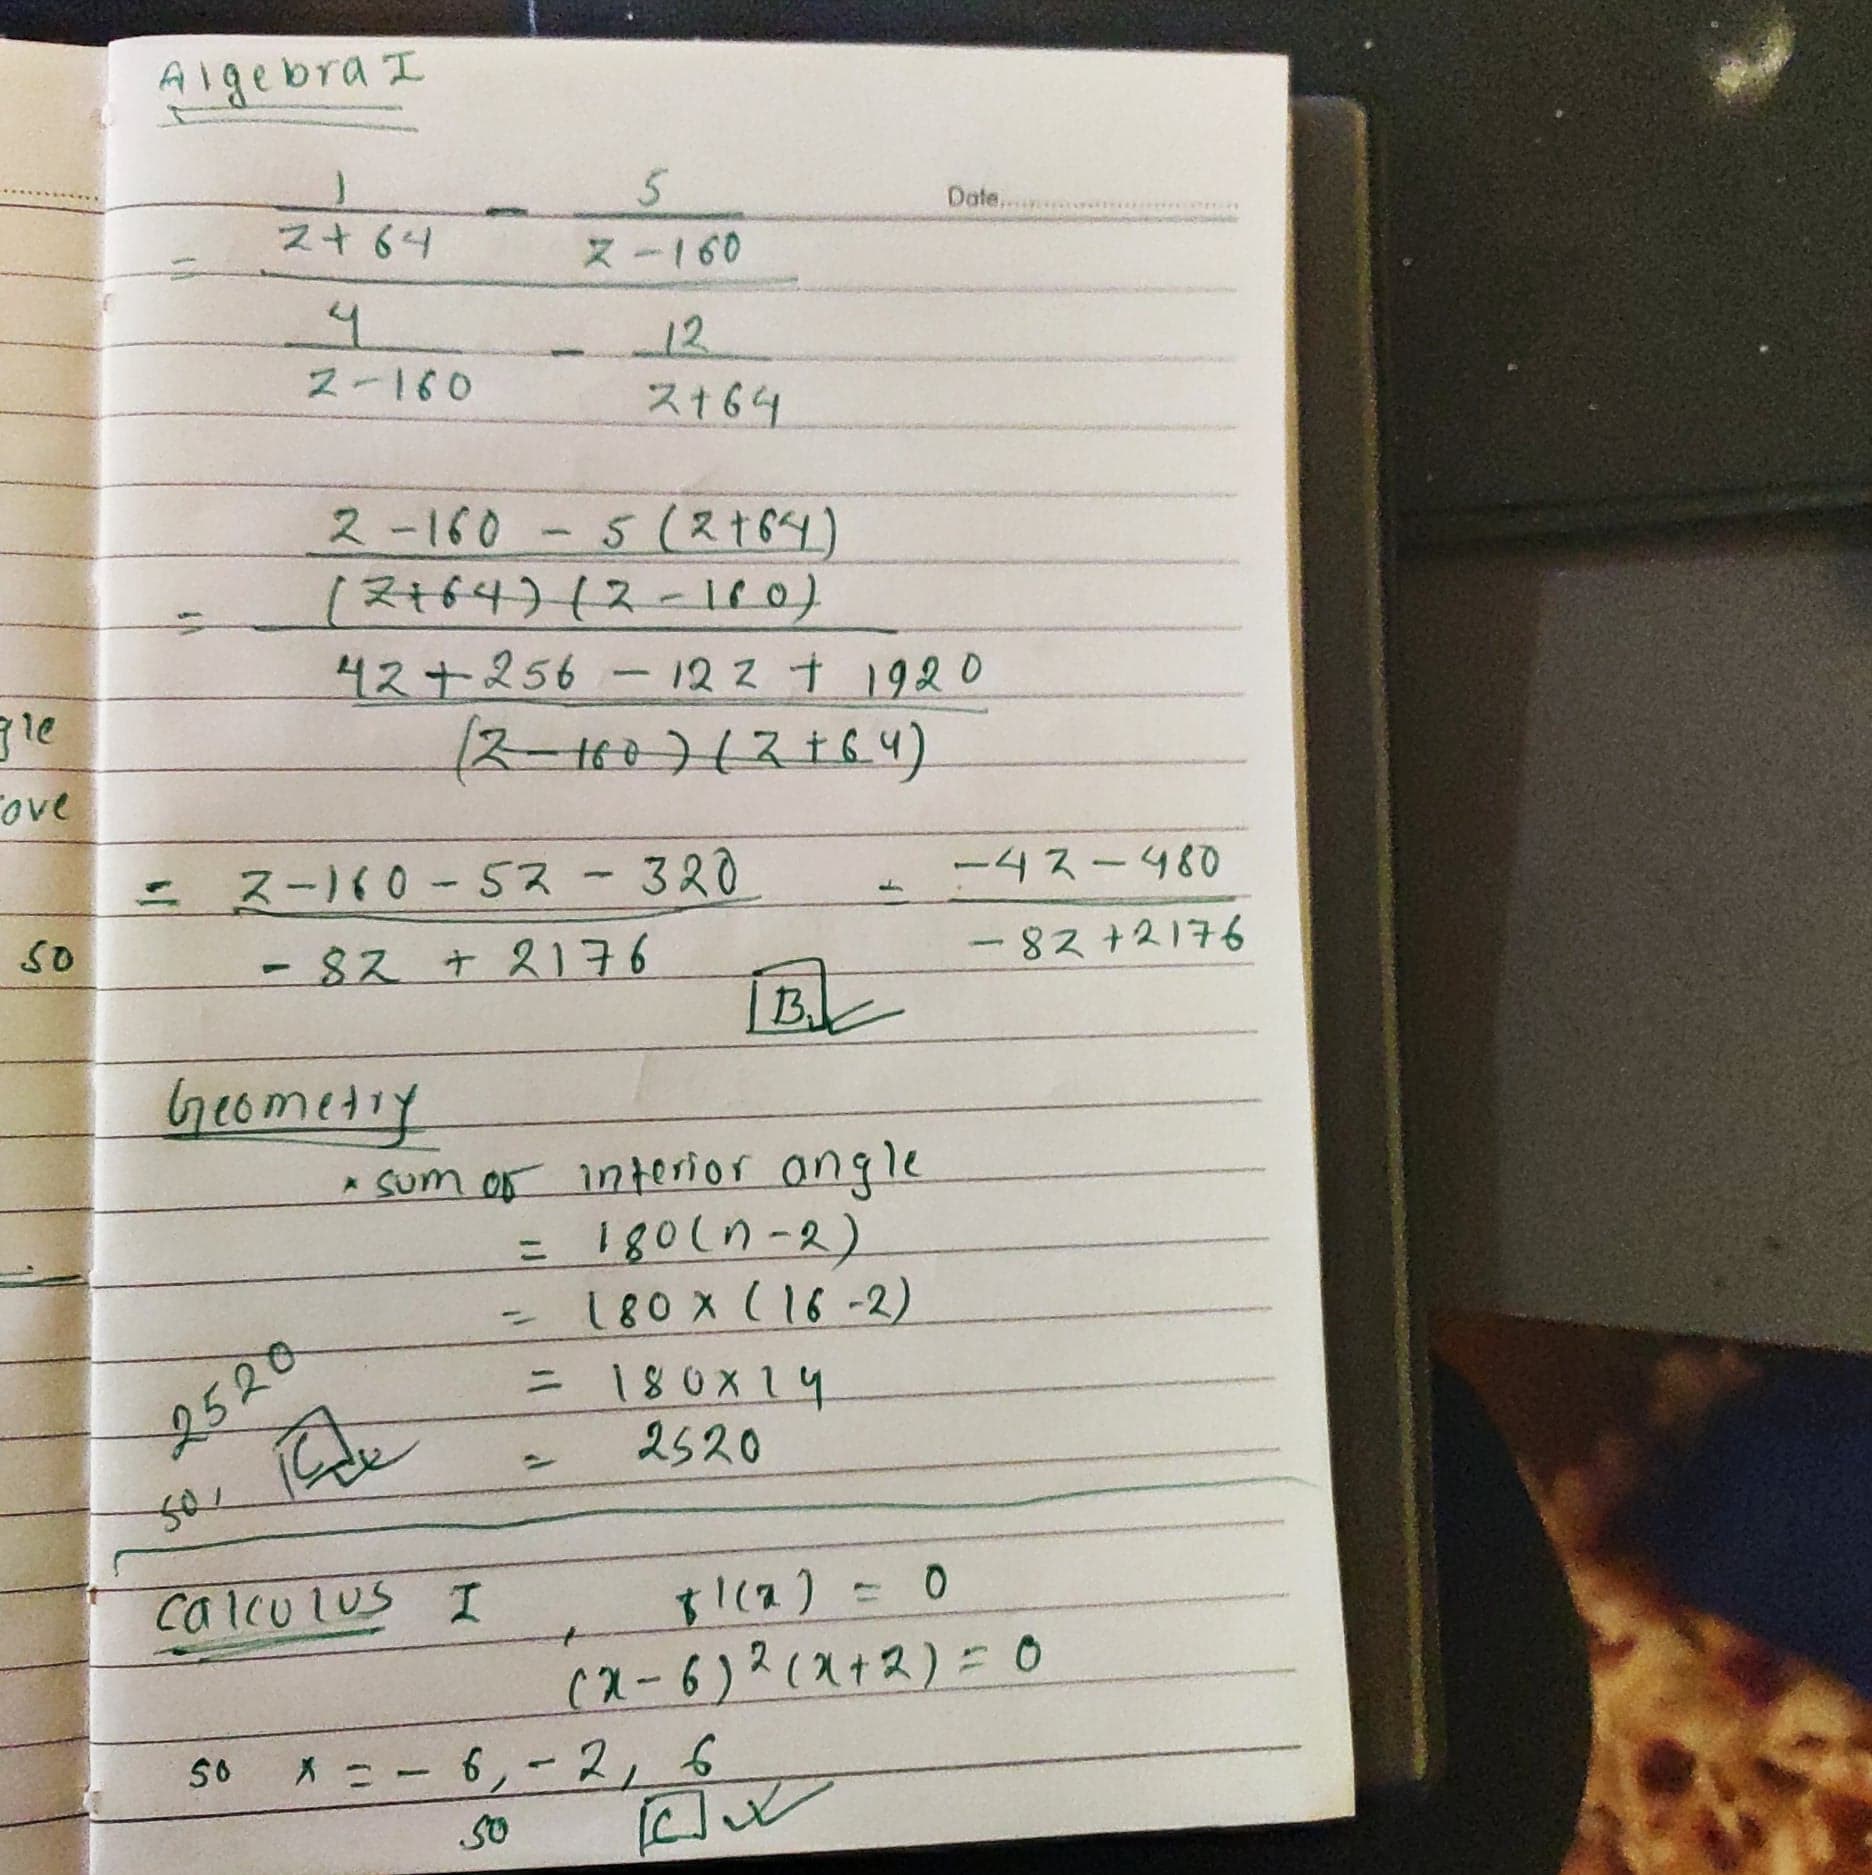 Algebra I
Date
1 - 5
z+64 z-160
=
4 - 12
z-160 z+64
z-160 - 5(z+64)
(z+64)(z-160)
=
4z+256 - 12z + 1920
(z-160)(z+64)
= z-160-5z-320 = -4z-480
-8z + 2176 -8z+2176
B.
Geometry
* sum of interior angle
= 180(n-2)
= 180 x (16-2)
= 180x14
= 2520
2520
so, C
Calculus I , f'(x) = 0
(x-6)²(x+2) = 0
so x = -6, -2, 6
so C
gle
ove
so